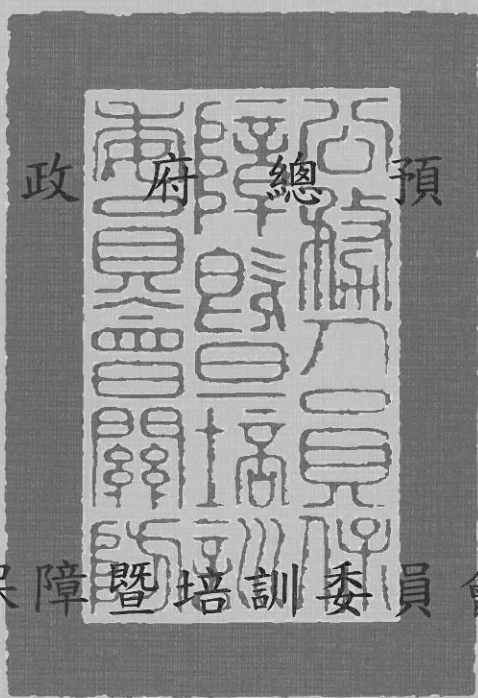 政府總預
公務人員保
障暨培訓
委員會關防
保障暨培訓委員會